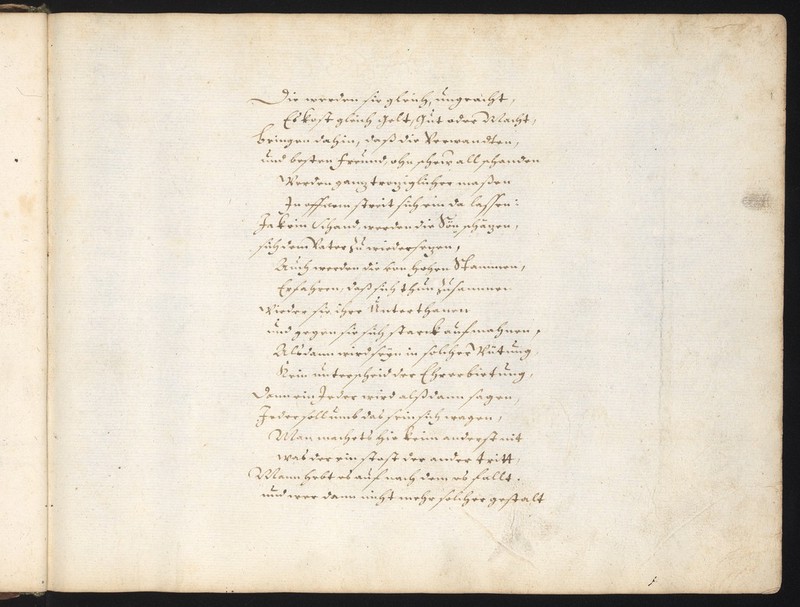 Die werden sie gleich, ungeacht,
Es kost gleich Gelt, Gut oder Macht,
bringen dahin, daß die Verwandten,
und besten Freund, ohn schew all schanden
Werden ganz troziglicher maßen
In offnem streit sich ein da lassen:
Ja kein Schand, werden die Sön schäzen,
sich dem Vater zu wiedersezen,
Auch werden die von hohen Stammen,
Erfahren, daß sich thun zusammen
Wieder sie ihre Unterthanen
und gegen sie sich starck aufmahnen,
Alsdann wird sein in solcher Wütung,
Kein unterscheid der Ehrerbietung,
Dann ein Jeder wird alßdann sagen,
Jeder soll umb das sein sich wagen,
Man machets hie keim anderst nit
was der ein stost der ander tritt,
Mann hebt es auf nach dem es fallt.
und wer dann nicht mehr solcher gestalt